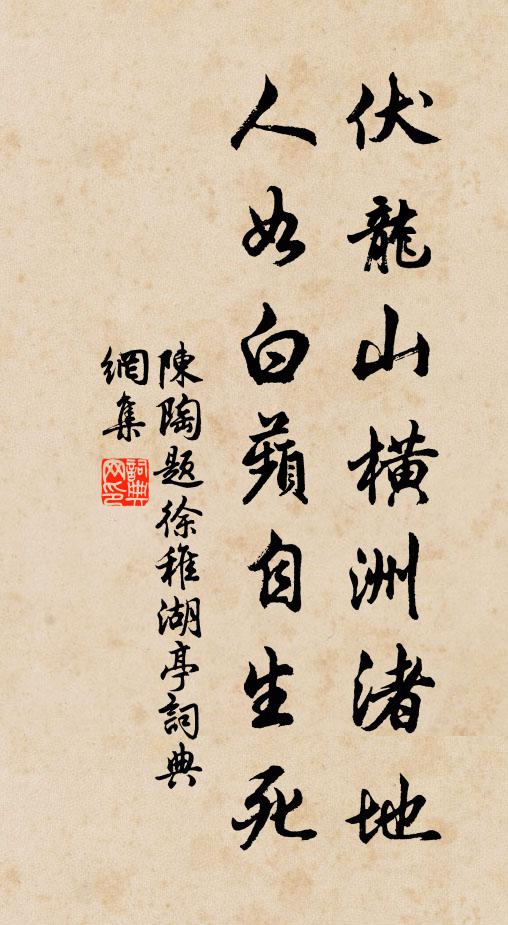 伏龍山橫洲渚地
人如白蘋自生死
陳陶題徐稚湖亭詞典
網集
詞典
网印